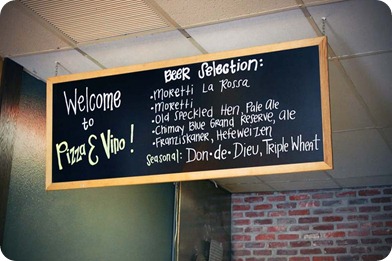 Welcome
to
Pizza & Vino!
Beer Selection:
• Moretti La Rossa
• Moretti
• Old Speckled Hen, Pale Ale
• Chimay Blue Grand Reserve, ale
• Franziskaner, Hefeweizen
Seasonal: Don • de • Dieu, Triple Wheat